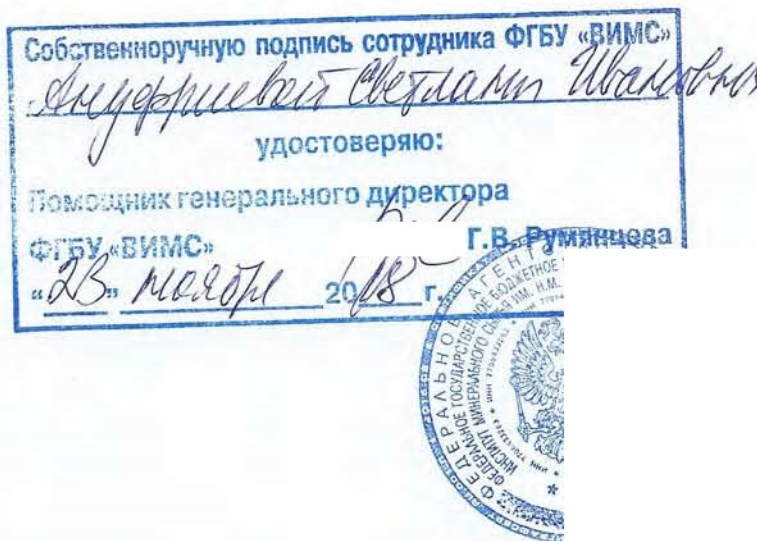 Собственноручную подпись сотрудника ФГБУ «ВИМС»
Ануфриевой Светланы Ивановны
удостоверяю:
Помощник генерального директора
ФГБУ «ВИМС» Г.В. Румянцева
"23" ноября 2018 г.
ФЕДЕРАЛЬНОЕ АГЕНТ
ФЕДЕРАЛЬНОЕ ГОСУДАРСТВЕННОЕ БЮДЖЕТНОЕ
ИНСТИТУТ МИНЕРАЛЬНОГО СЫРЬЯ ИМ. Н.М.